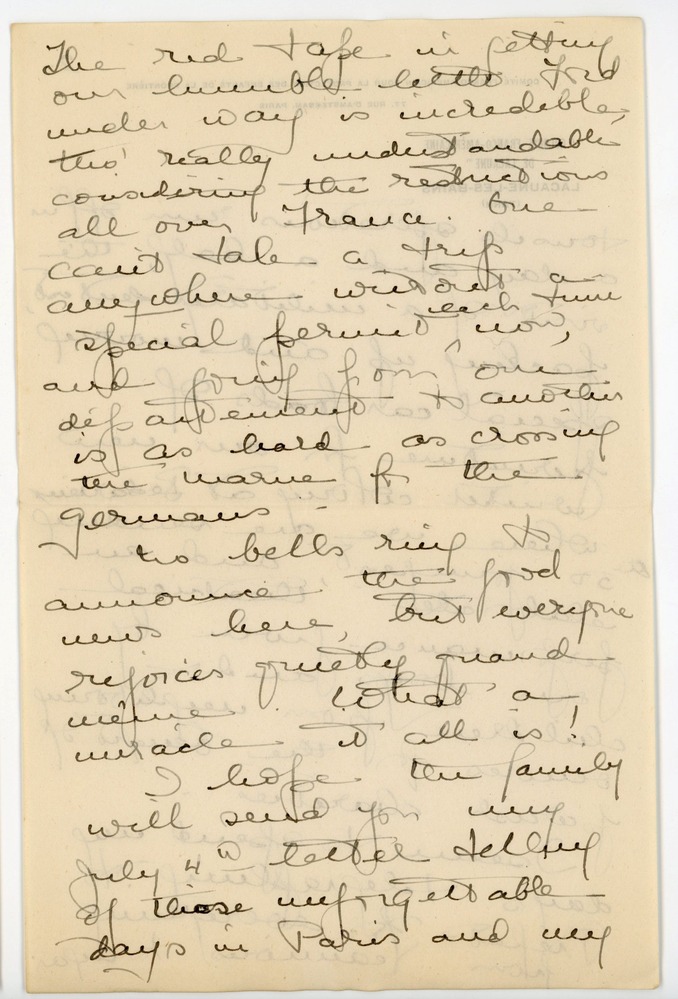 The red tape in getting
our humble little Ford
under way is incredible,
tho' really understandable
considering the restrictions
all over France. One
can't take a trip
anywhere without a
special permit, each time now,
and going from one
département to another
is as hard as crossing
the Marne for the
Germans -
No bells ring to
announce the good
news here, but everyone
rejoices quietly quand
même. What a
miracle it all is!
I hope the family
will send you my
July 4th letter telling
of those unforgettable
days in Paris and my